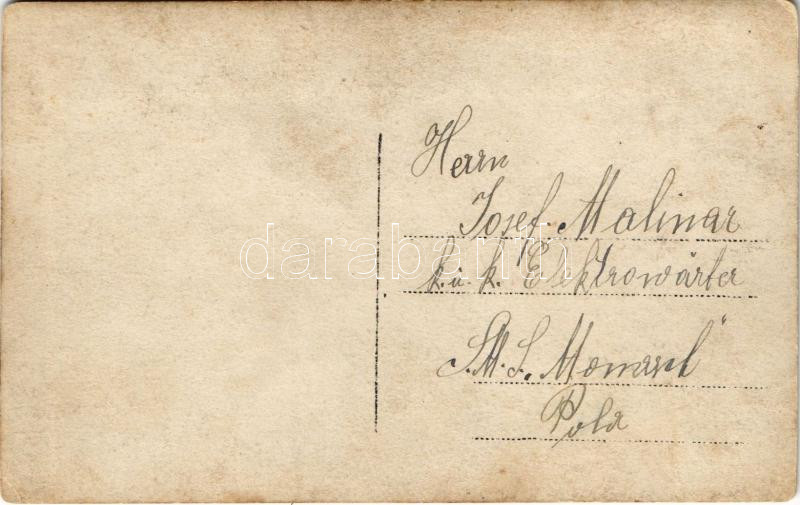 Herrn
Josef Malinar
k. u. k. Elektrowärter
S.M.S. „Monarch"
Pola
darabanth